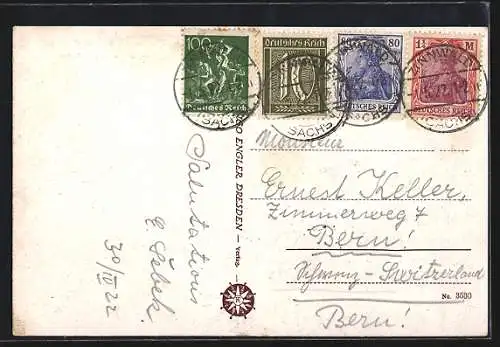 100
Deutsches Reich
Deutsches Reich
10
80
Deutsches Reich
1¼ M
Deutsches Reich
SACHS
Salutations
E. Šebek
30/IV 22
ENGLER DRESDEN — Verlag
Monsieur
Ernest Keller,
Zimmerweg 7
Bern!
Schweiz - Switzerland
No. 3500
Bern!